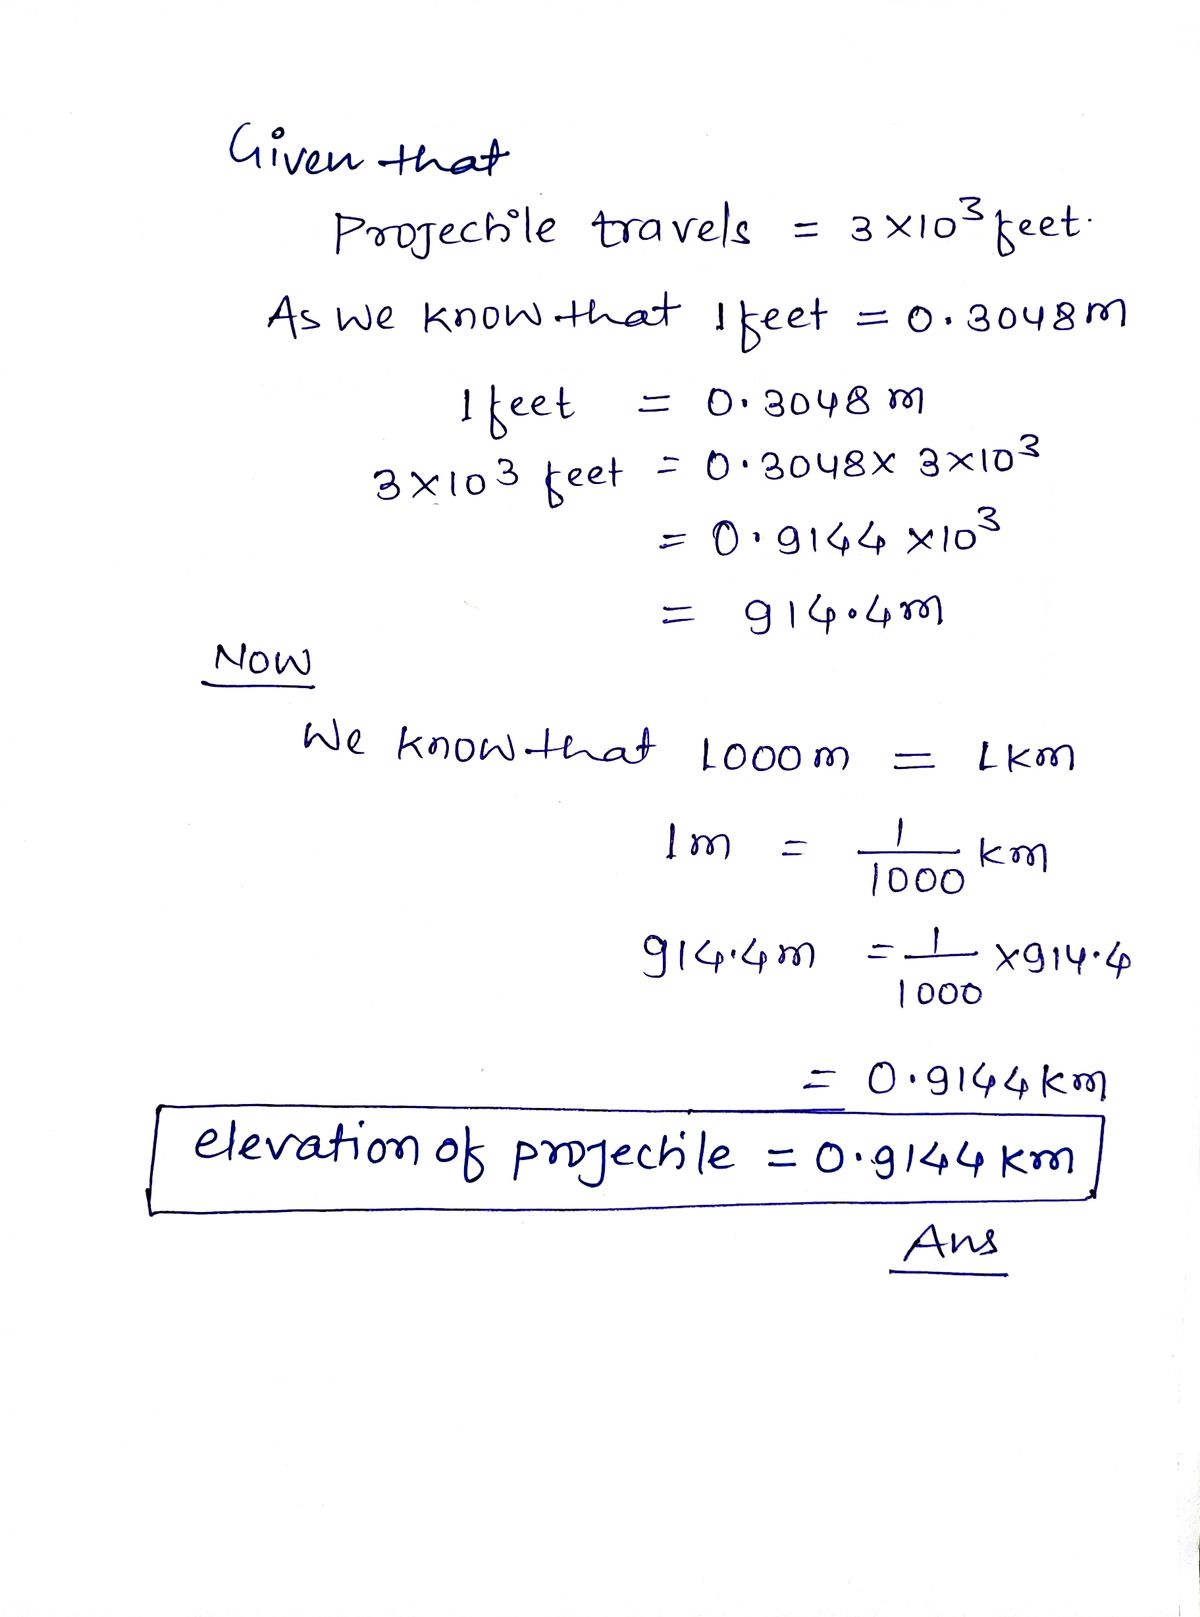 Given that
Projectile travels = 3×10³ feet.
As we know that 1 feet = 0.3048m
1 feet = 0.3048 m
3×10³ feet = 0.3048× 3×10³
= 0.9144 ×10³
= 914.4m
Now
We know that 1000m = 1km
1m = 1/1000 km
914.4m = 1/1000 ×914.4
= 0.9144km
elevation of projectile = 0.9144 km
Ans